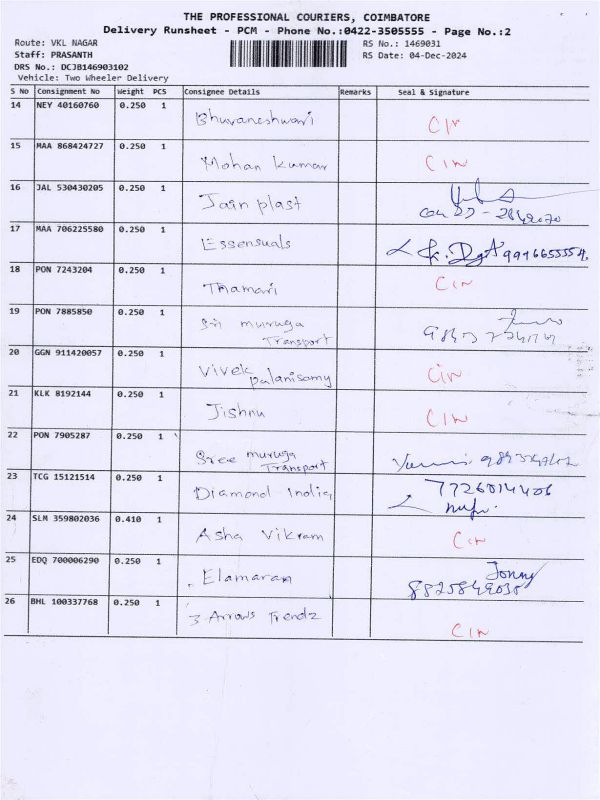 THE PROFESSIONAL COURIERS, COIMBATORE
Delivery Runsheet - PCM - Phone No.:0422-3505555 - Page No.:2
Route: VKL NAGAR RS No.: 1469031
Staff: PRASANTH RS Date: 04-Dec-2024
DRS No.: DCJB146903102
Vehicle: Two Wheeler Delivery
S No Consignment No Weight PCS Consignee Details Remarks Seal & Signature
14 NEY 40160760 0.250 1 Bhuvaneshwari
15 MAA 868424727 0.250 1 Mohan Kumar
16 JAL 530430205 0.250 1 Jain plast
17 MAA 706225580 0.250 1 Essensuals
18 PON 7243204 0.250 1 Thamari
19 PON 7885850 0.250 1 Sri muruga
Transport
20 GGN 911420057 0.250 1 Vivek
palanisamy
21 KLK 8192144 0.250 1 Jishnu
22 PON 7905287 0.250 1 Sree muruga
Transport
23 TCG 15121514 0.250 1 Diamond India 7726014406
24 SLM 359802036 0.410 1 Asha Vikram
25 EDQ 700006290 0.250 1 Elamaran Jonny
8825849038
26 BHL 100337768 0.250 1 3 Arrows Trendz